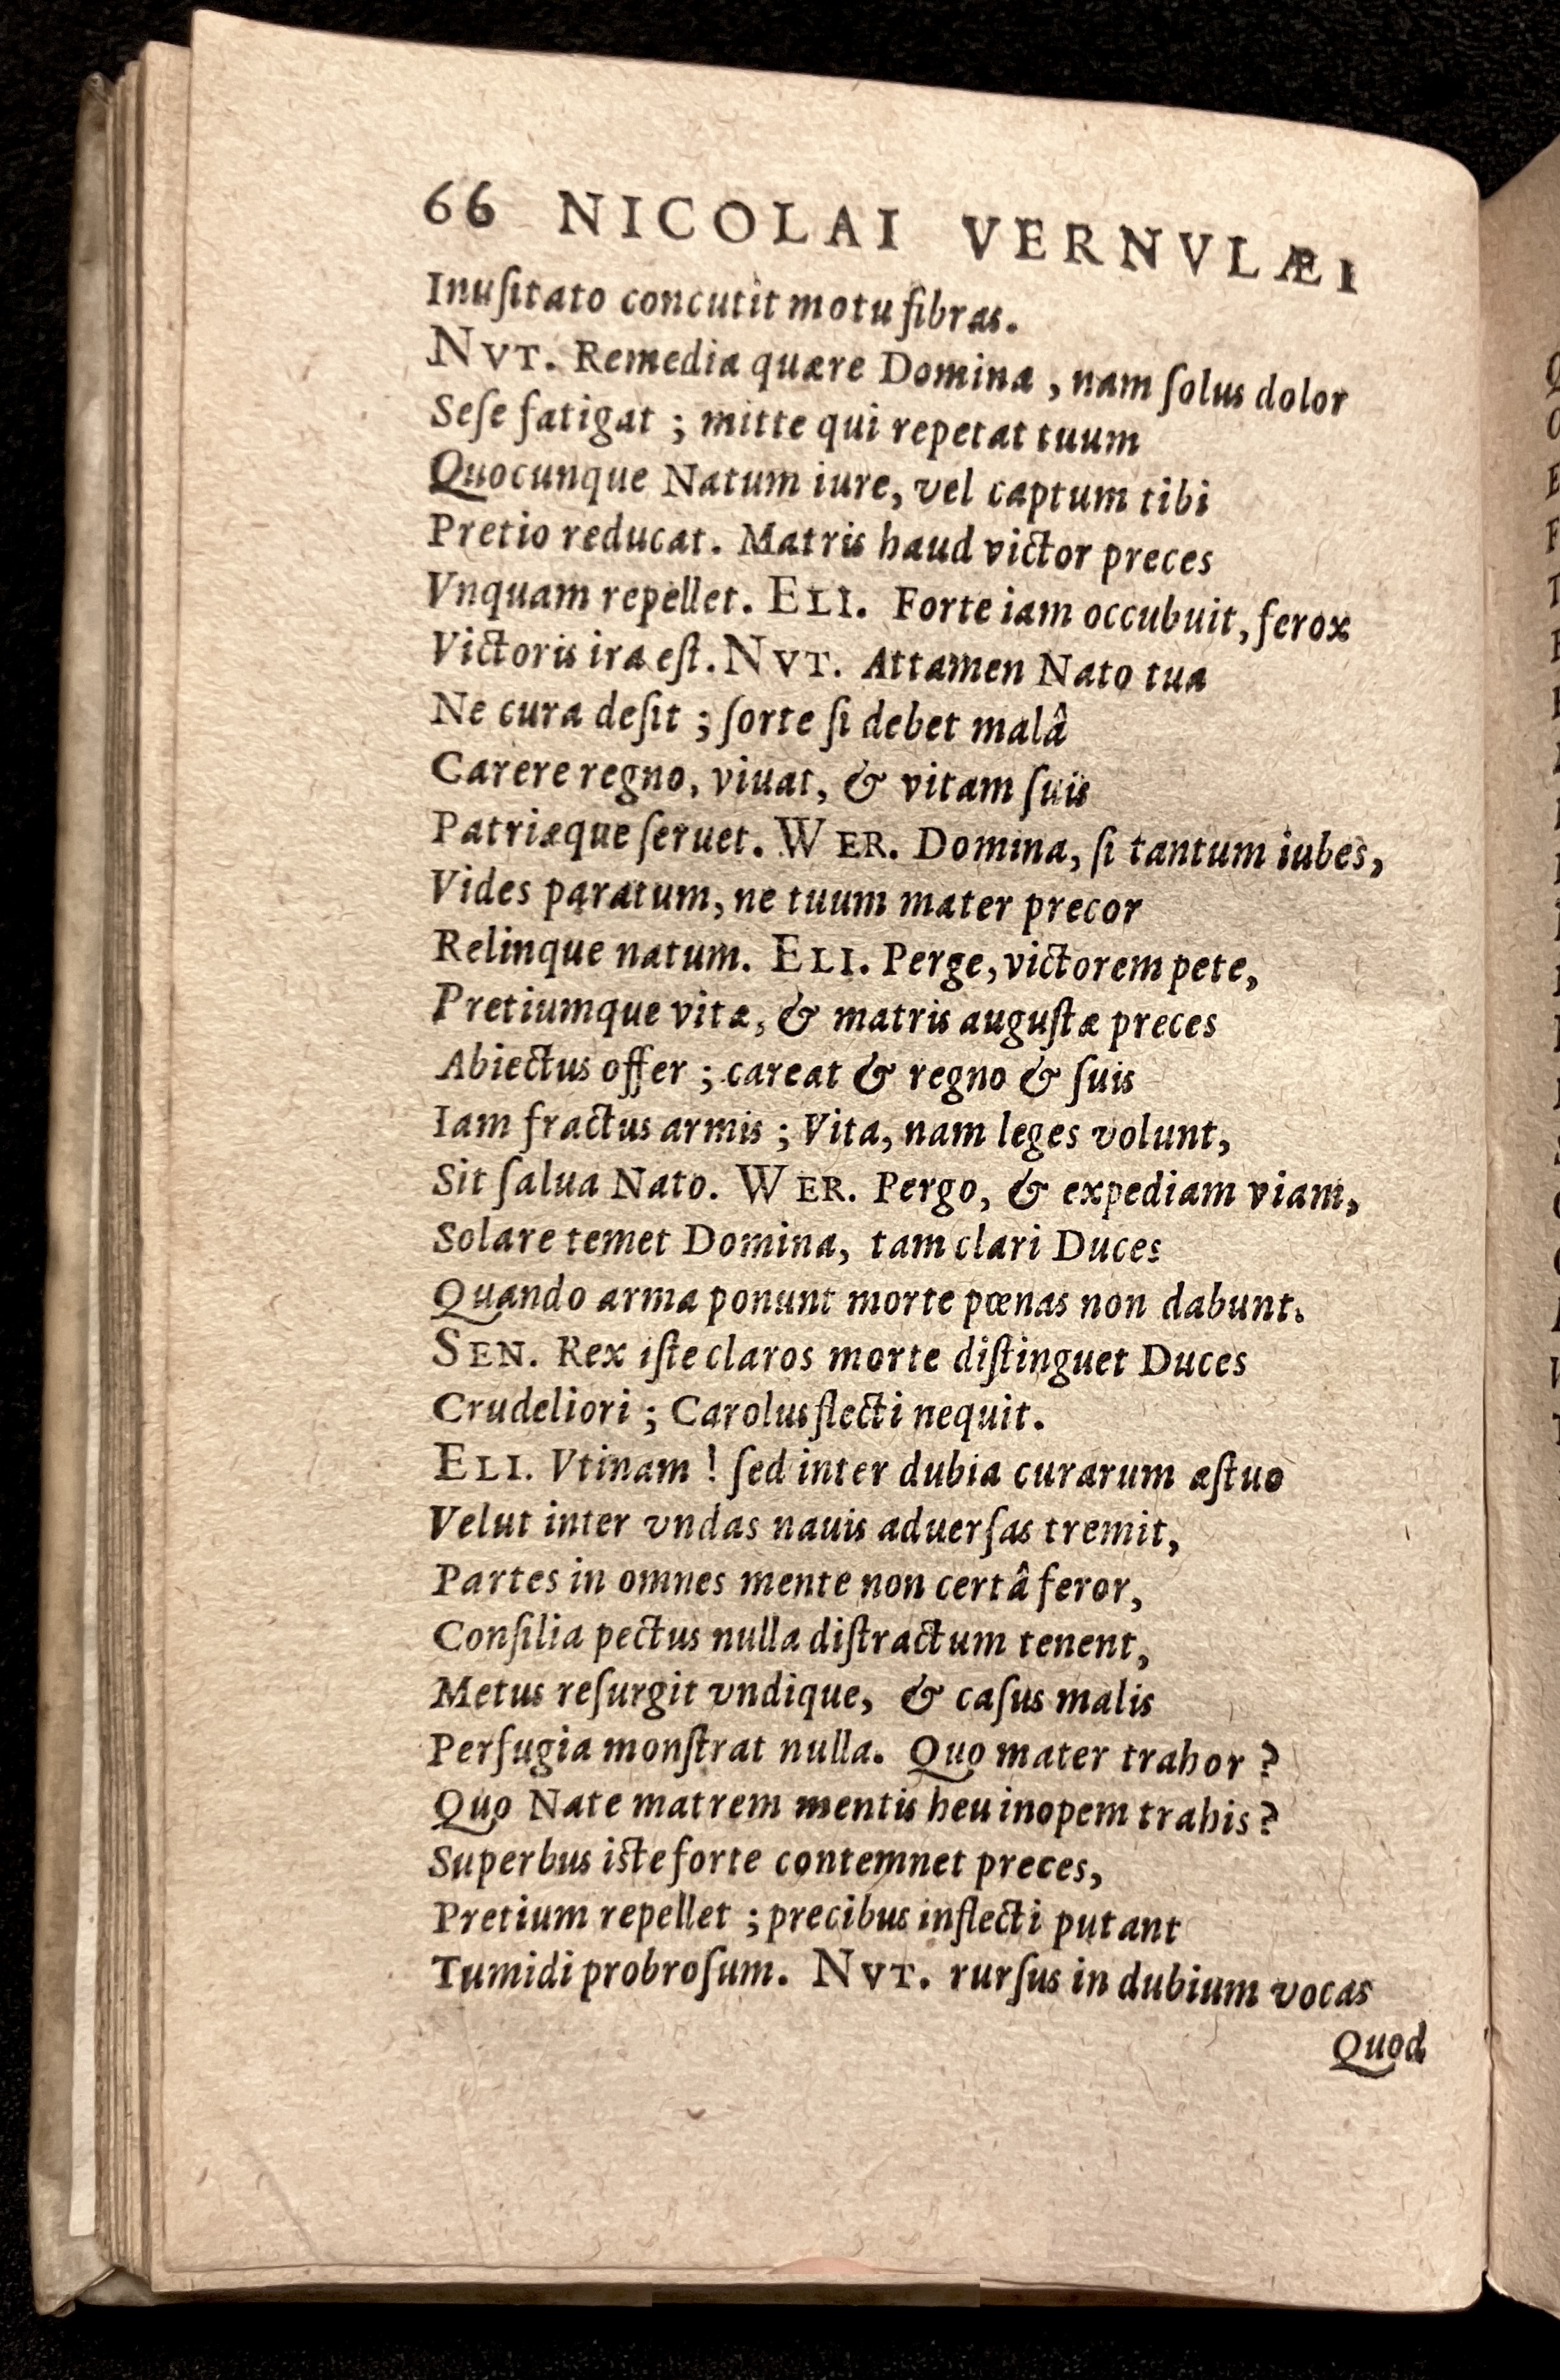 66 NICOLAI VERNVLÆI
Inuſitato concutit motu fibras.
NVT. Remedia quære Domina, nam ſolus dolor
Seſe fatigat; mitte qui repetat tuum
Quocunque Natum iure, vel captum tibi
Pretio reducat. Matris haud victor preces
Vnquam repellet. ELI. Forte iam occubuit, ferox
Victoris ira eſt. NVT. Attamen Nato tua
Ne cura deſit; ſorte ſi debet malâ
Carere regno, viuat, & vitam ſuis
Patriæque ſeruet. WER. Domina, ſi tantum iubes,
Vides paratum, ne tuum mater precor
Relinque natum. ELI. Perge, victorem pete,
Pretiumque vitæ, & matris auguſtæ preces
Abiectus offer; careat & regno & ſuis
Iam fractus armis; Vita, nam leges volunt,
Sit ſalua Nato. WER. Pergo, & expediam viam,
Solare temet Domina, tam clari Duces
Quando arma ponunt morte pœnas non dabunt.
SEN. Rex iſte claros morte diſtinguet Duces
Crudeliori; Carolus flecti nequit.
ELI. Vtinam! ſed inter dubia curarum æſtuo
Velut inter vndas nauis aduerſas tremit,
Partes in omnes mente non certâ feror,
Conſilia pectus nulla diſtractum tenent,
Metus reſurgit vndique, & caſus malis
Perfugia monſtrat nulla. Quo mater trahor?
Quo Nate matrem mentis heu inopem trahis?
Superbus iſte forte contemnet preces,
Pretium repellet; precibus inflecti putant
Tumidi probroſum. NVT. rurſus in dubium vocas
Quod